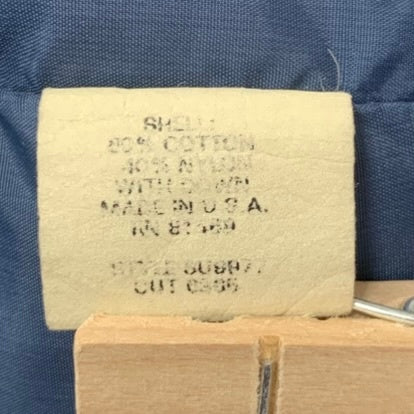 SHELL:
60% COTTON
40% NYLON
WITH DOWN
MADE IN U.S.A.
RN
STYLE
CUT